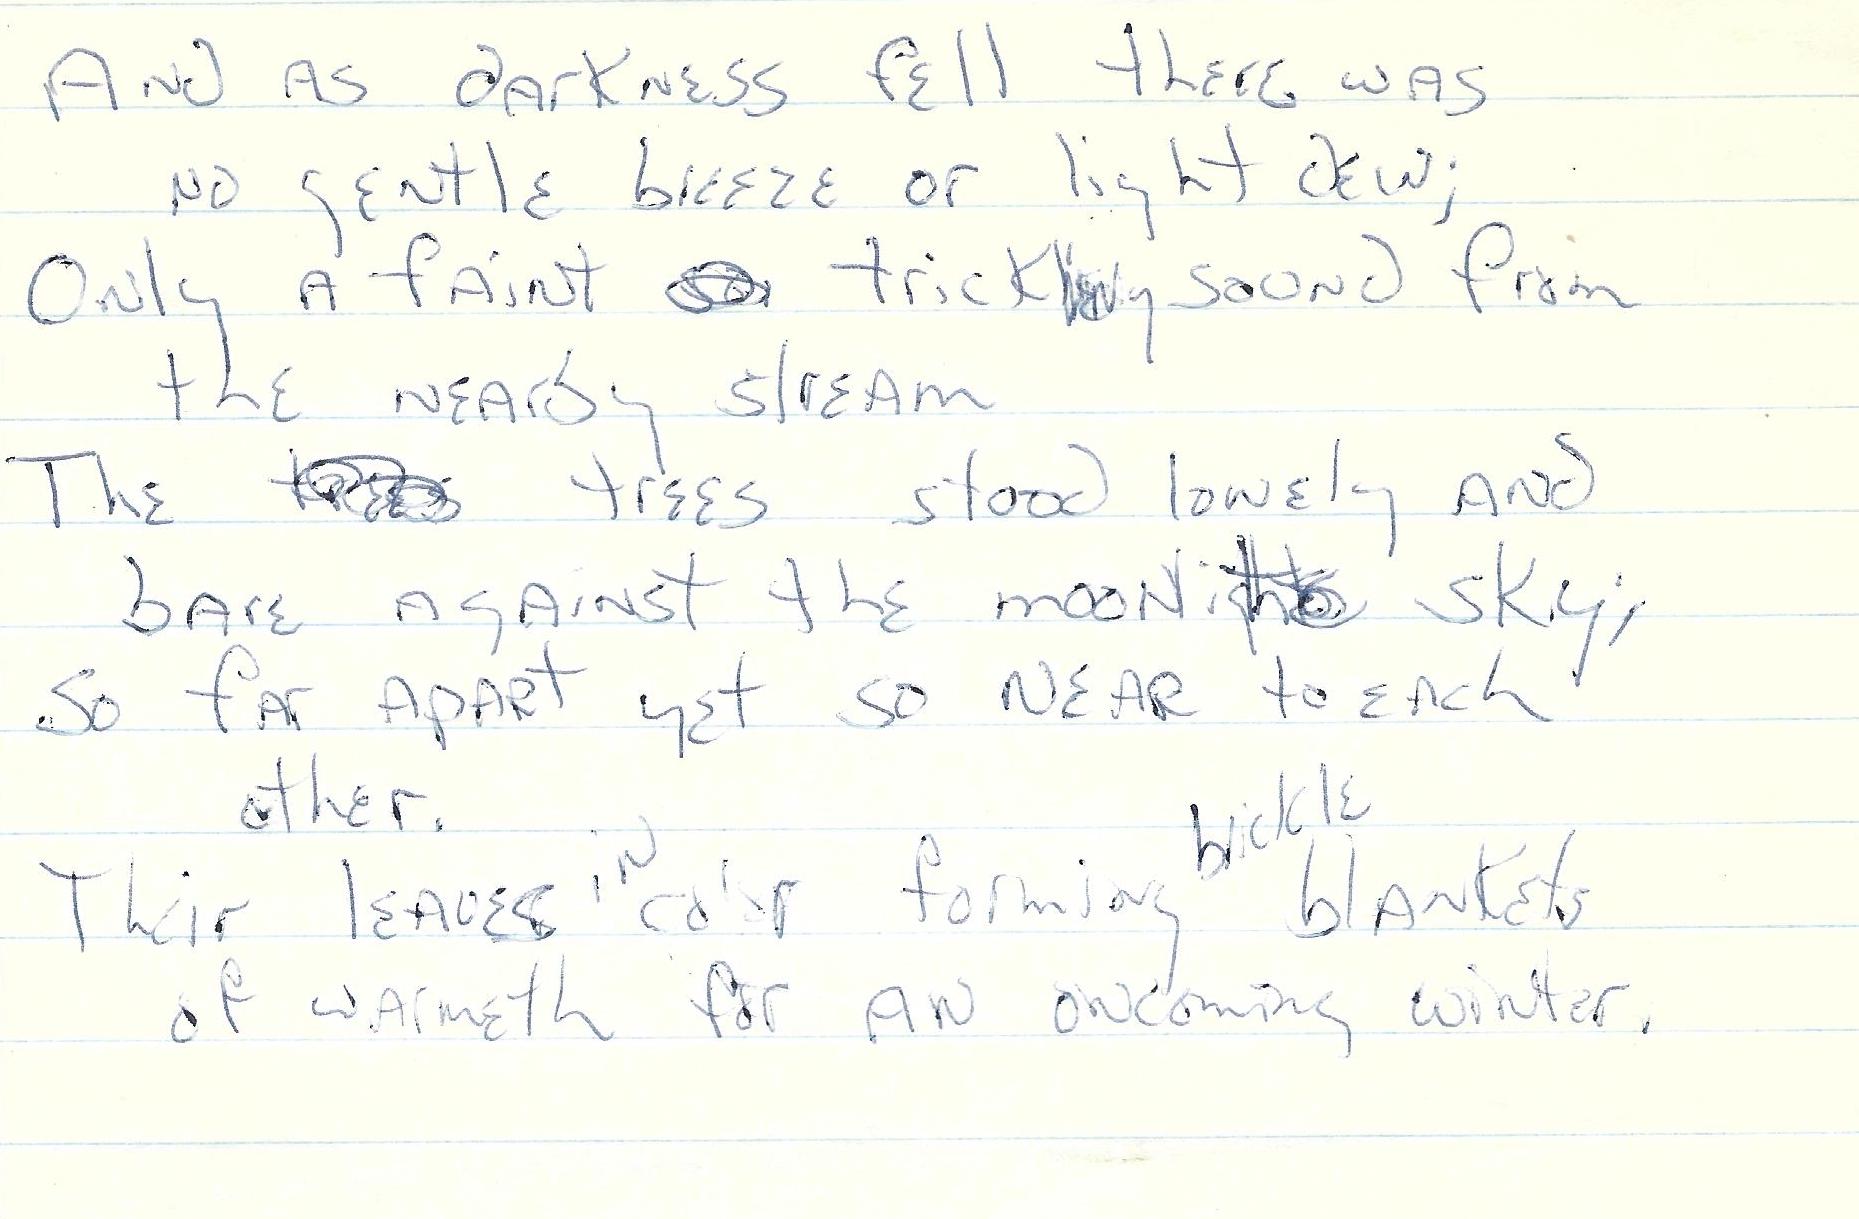 And as darkness fell there was
no gentle breeze or light dew;
Only a faint trickling sound from
the nearby stream
The trees stood lonely and
bare against the moonlit sky;
So far apart yet so near to each
other.
Their leaves in color forming brickle blankets
of warmeth for an oncoming winter.